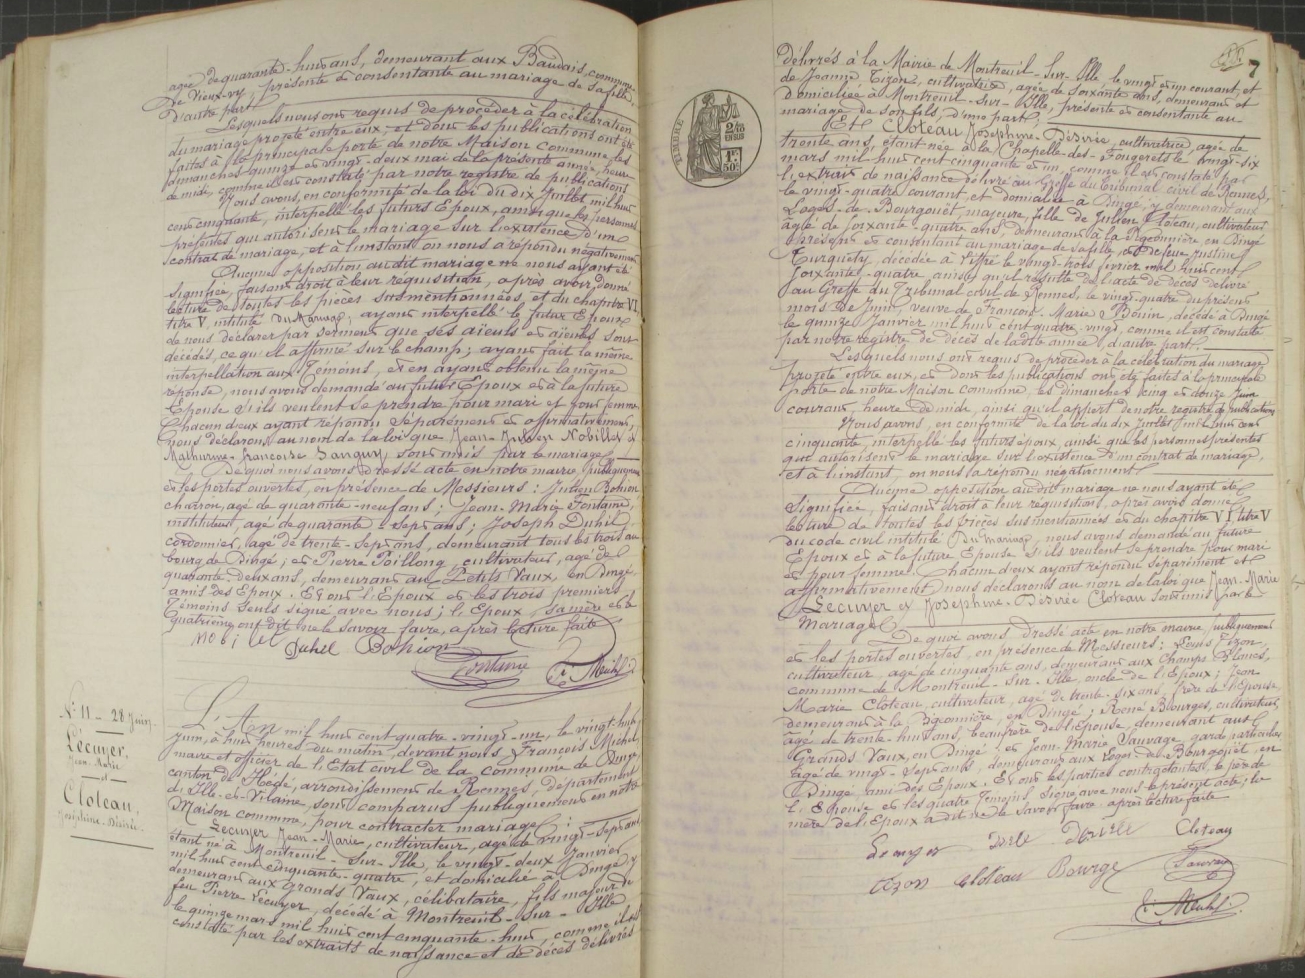 agée de quarante-huit ans, demeurant aux Baudais, commune
de Vieux-vy, présente et consentante au mariage de sa fille,
d'autre part.
Lesquels nous ont requis de procéder à la célébration
du mariage projeté entre eux, et dont les publications ont été
faites à la principale porte de notre Maison commune, les
dimanches quinze et vingt-deux mai de la présente année, heure
de midi, comme il est constaté par notre registre de publications.
Nous avons, en conformité de la loi du dix Juillet mil huit
cent cinquante, interpellé les futurs Epoux, ainsi que les personnes
présentes qui autorisent le mariage sur l'existence d'un
contrat de mariage, et à l'instant on nous a répondu négativement
Aucune opposition audit mariage ne nous ayant été
signifiée, faisant droit à leur requisition, après avoir donné
lecture de toutes les pièces susmentionnées, et du chapitre VI,
titre V, intitulé du Mariage, ayant interpellé le futur Epoux
de nous déclarer par serment que ses aïeuls et aïeules sont
décédés, ce qu'il affirmé sur le champ; ayant fait la même
interpellation aux Témoins, et en ayant obtenu la même
réponse, nous avons demandé au futur Epoux et à la future
Epouse s'ils veulent se prendre pour mari et pour femme
Chacun d'eux ayant répondu séparément et affirmativement,
nous déclarons au nom de la loi que Jean Julien Nobillet et
Mathurine-Françoise Sanguy sont unis par le mariage
De quoi nous avons dressé acte en notre mairie publiquement
et les portes ouvertes, en présence de Messieurs: Julien Bohuon
charron, agé de quarante-neuf ans; Jean-Marie Fontaine,
instituteur, agé de quarante-sept ans; Joseph Duhil
cordonnier, agé de trente-sept ans, demeurant tous les trois au
bourg de Dingé; et Pierre Poillong, cultivateur, agé de
quarante-deux ans, demeurant au Petits Vaux, en Dingé,
amis des Epoux. Et ont l'Epoux et les trois premiers
Témoins seuls signé avec nous; l'Epoux, sa mère et le
quatrième ont dit ne le savoir faire, après lecture faite
Nobillet Duhil Bohuon
Fontaine
F. Michel
N° 11 - 28 Juin
Lécuyer,
Jean-Marie
et
Cloteau,
Joséphine-Désirée
L'An mil huit cent quatre-vingt-un, le vingt-huit
juin, à huit heures du matin, devant nous François Michel,
maire et officier de l'Etat civil de la commune de Dingé,
canton de Hédé, arrondissement de Rennes, département
d'Ille-et-Vilaine, sont comparus publiquement en notre
Maison commune, pour contracter mariage:
Lecuyer Jean-Marie, cultivateur, agé de vingt-sept ans
étant né à Montreuil-Sur-Ille, le vingt-deux Janvier
mil huit cent cinquante-quatre, et domicilié à Dingé y
demeurant aux Grands Vaux, célibataire, fils majeur de
feu Pierre Lécuyer, décédé à Montreuil-Sur-Ille
le quinze mars mil huit cent cinquante-huit, comme il est
constaté par les extraits de naissance et de décès délivrés
7
TIMBRE
2/10
EN SUS
1F.
50c.
délivrés à la Mairie de Montreuil-Sur-Ille le vingt et un courant; et
de Jeanne Tizon, cultivatrice, agée de soixante ans, demeurant et
domiciliée à Montreuil-Sur-Ille, présente et consentante au
mariage de son fils, d'une part.
Et Cloteau Joséphine-Désirée, cultivatrice, agée de
trente ans, étant née à la Chapelle-des-Fougerets le vingt-six
mars mil huit cent cinquante et un, comme il est constaté par
l'extrait de naissance délivré au Greffe du Tribunal civil de Rennes,
le vingt-quatre courant, et domiciliée à Dingé, y demeurant aux
Loges-de-Bourgouët, majeure, fille de Julien Cloteau, cultivateur,
agé de soixante-quatre ans, demeurant à la Pigeonnière en Dingé
présent et consentant au mariage de sa fille, et de feue Justine
Turquety, décédée à Liffré le vingt-trois février mil huit cent
soixante-quatre, ainsi qu'il résulte de l'acte de décès délivré
au Greffe du Tribunal civil de Rennes, le vingt-quatre du présent
mois de Juin, veuve de François-Marie Bonin, décédé à Dingé
le quinze Janvier mil huit cent quatre-vingt, comme il est constaté
par notre registre de décès de ladite année, d'autre part.
Lesquels nous ont requis de procéder à la célébration du mariage
projeté entre eux, et dont les publications ont été faites à la principale
porte de notre Maison commune, les dimanches cinq et douze Juin
courant, heure de midi, ainsi qu'il appert de notre registre de publications
Nous avons, en conformité de la loi du dix Juillet mil huit cent
cinquante interpellé les futurs époux, ainsi que les personnes présentes
qui autorisent le mariage sur l'existence d'un contrat de mariage,
et à l'instant, on nous a répondu négativement.
Aucune opposition audit mariage ne nous ayant été
signifiée, faisant droit à leur réquisition, après avoir donné
lecture de toutes les pièces susmentionnées et du chapitre VI titre V
du code civil intitulé Du Mariage, nous avons demandé au futur
Epoux et à la future Epouse s'ils veulent se prendre pour mari
et pour femme. Chacun d'eux ayant répondu séparément et
affirmativement, nous déclarons au nom de la loi que Jean-Marie
Lecuyer et Joséphine-Désirée Cloteau sont unis par le
Mariage
De quoi avons dressé acte en notre mairie publiquement
et les portes ouvertes, en présence de Messieurs: Louis Tizon,
cultivateur, agé de cinquante ans, demeurant aux Champs Blancs,
commune de Montreuil-Sur-Ille, oncle de l'Epoux; Jean-
Marie Cloteau, cultivateur, agé de trente-six ans, frère de l'Epouse,
demeurant à la Pigeonnière, en Dingé; René Bourges, cultivateur,
agé de trente-huit ans, beau frère de l'Epouse, demeurant aux
Grands Vaux, en Dingé; et Jean-Marie Sauvage, garde particulier
agé de vingt-sept ans, demeurant aux Loges-de-Bourgouët, en
Dingé ami des Epoux. Et ont les parties contractantes, le père de
l'Epouse et les quatre Témoins, signé avec nous le présent acte; la
mère de l'Epoux a dit ne le savoir faire après lecture faite
Lecuyer Cloteau
tizon Cloteau Bourge Sauvage
F. Michel